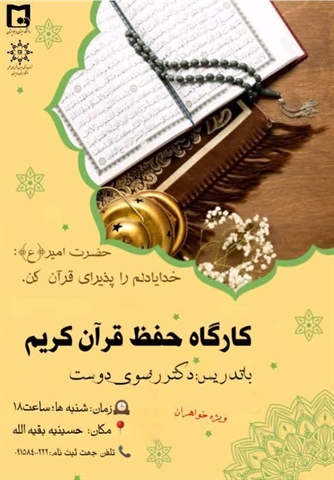 حضرت امیر(ع):
خدایادلم را پذیرای قرآن کن.
کارگاه حفظ قرآن کریم
باتدریس:دکتررضوی دوست
ویژه خواهران
زمان: شنبه ها؛ساعت۱۸
مکان: حسینیه بقیه الله
تلفن جهت ثبت نام:۰۹۱۵۸۴۰۰۲۲۲